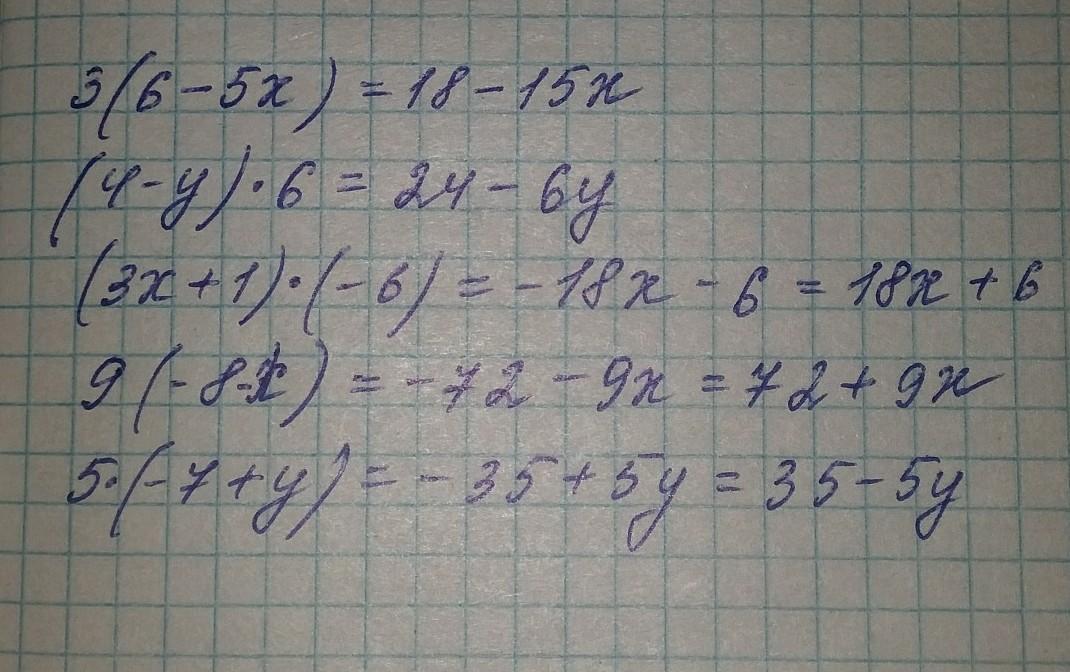 3(6-5x)=18-15x
(4-y)·6=24-6y
(3x+1)·(-6)=-18x-6=18x+6
9(-8-x)=-72-9x=72+9x
5·(-7+y)=-35+5y=35-5y